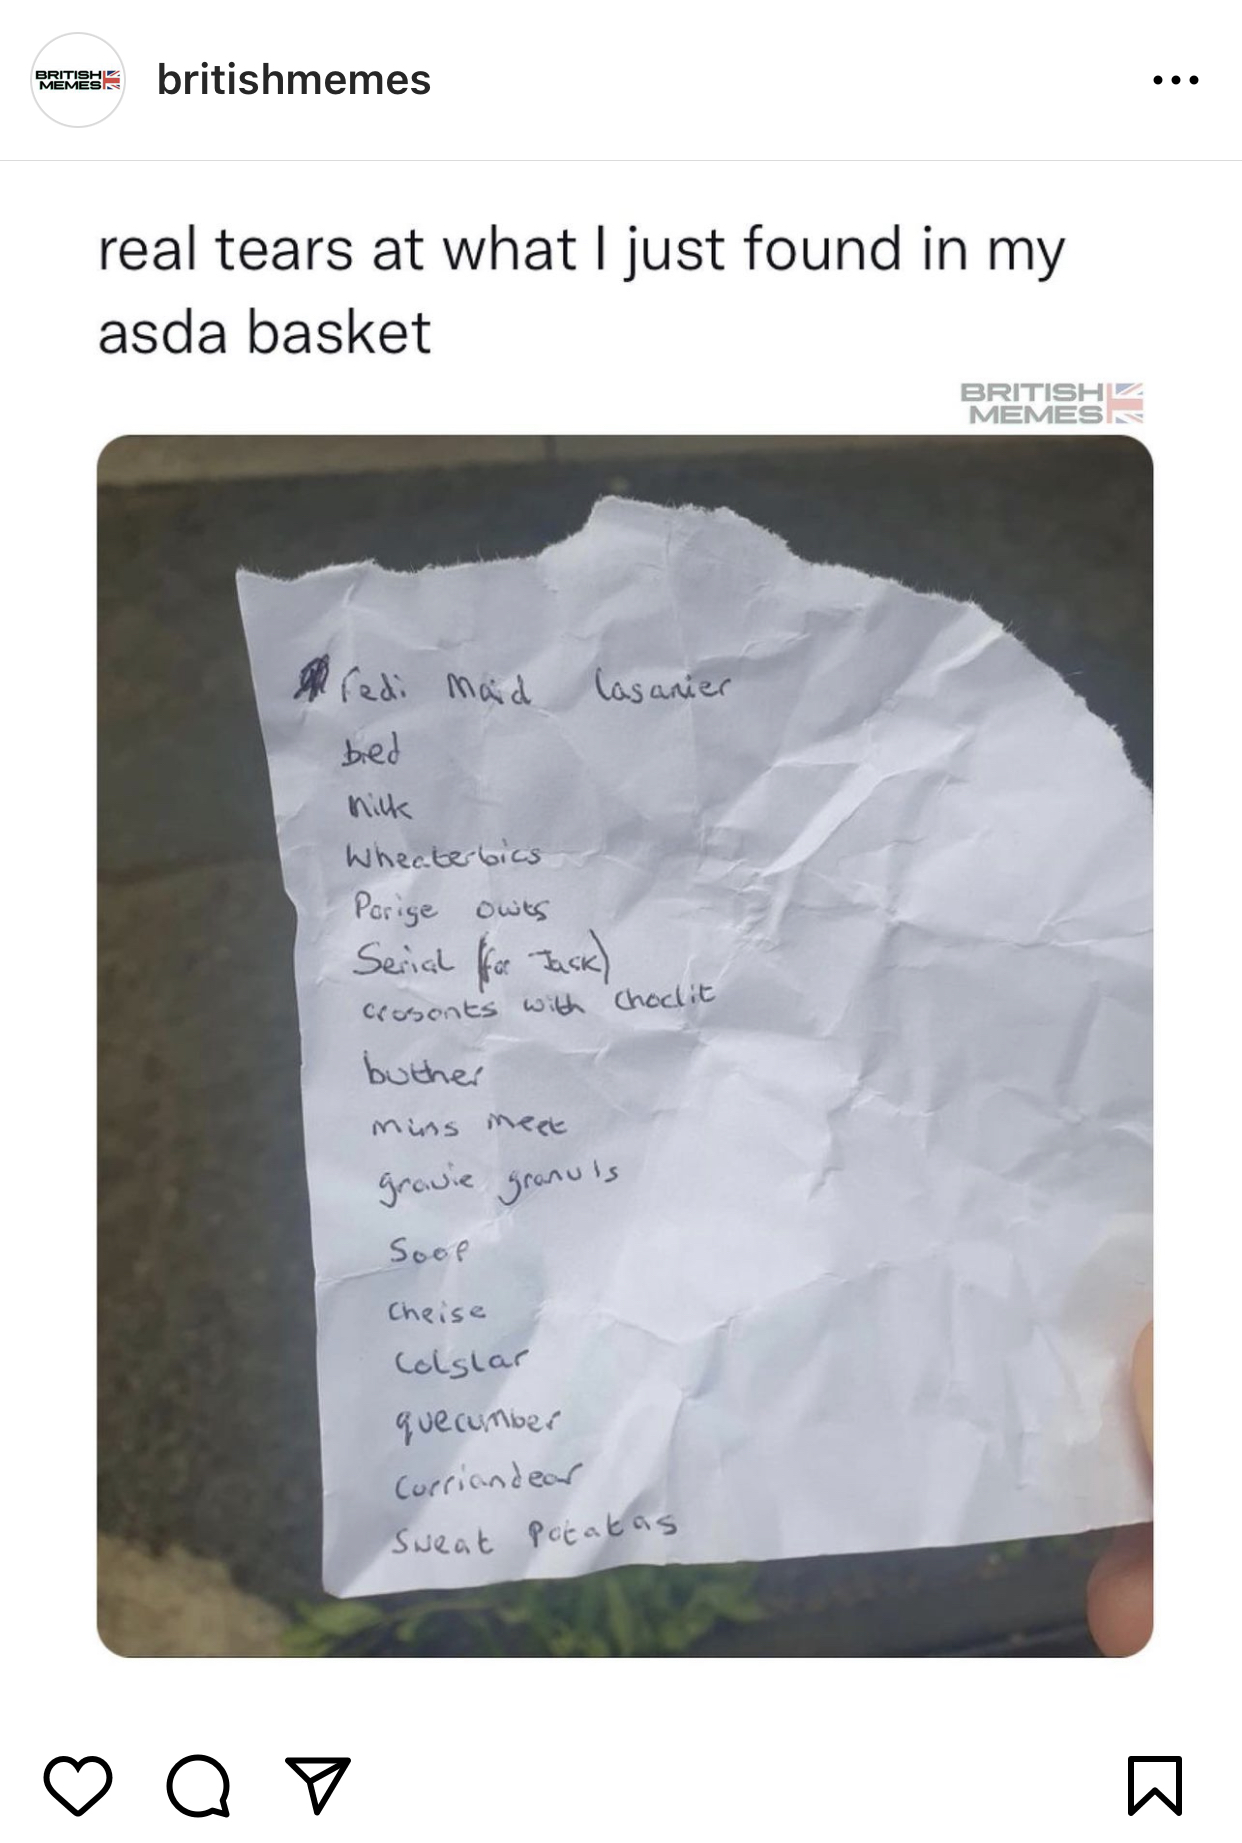 BRITISH
MEMES
britishmemes
real tears at what I just found in my
asda basket
BRITISH
MEMES
redi Maid Lasanier
bred
Milk
Wheaterbics
Porige owts
Serial (for Jack)
crosonts with Choclit
buther
mins meet
gravie granuls
Soop
Cheise
Colslar
quecumber
Corriandear
Sweat Potatas